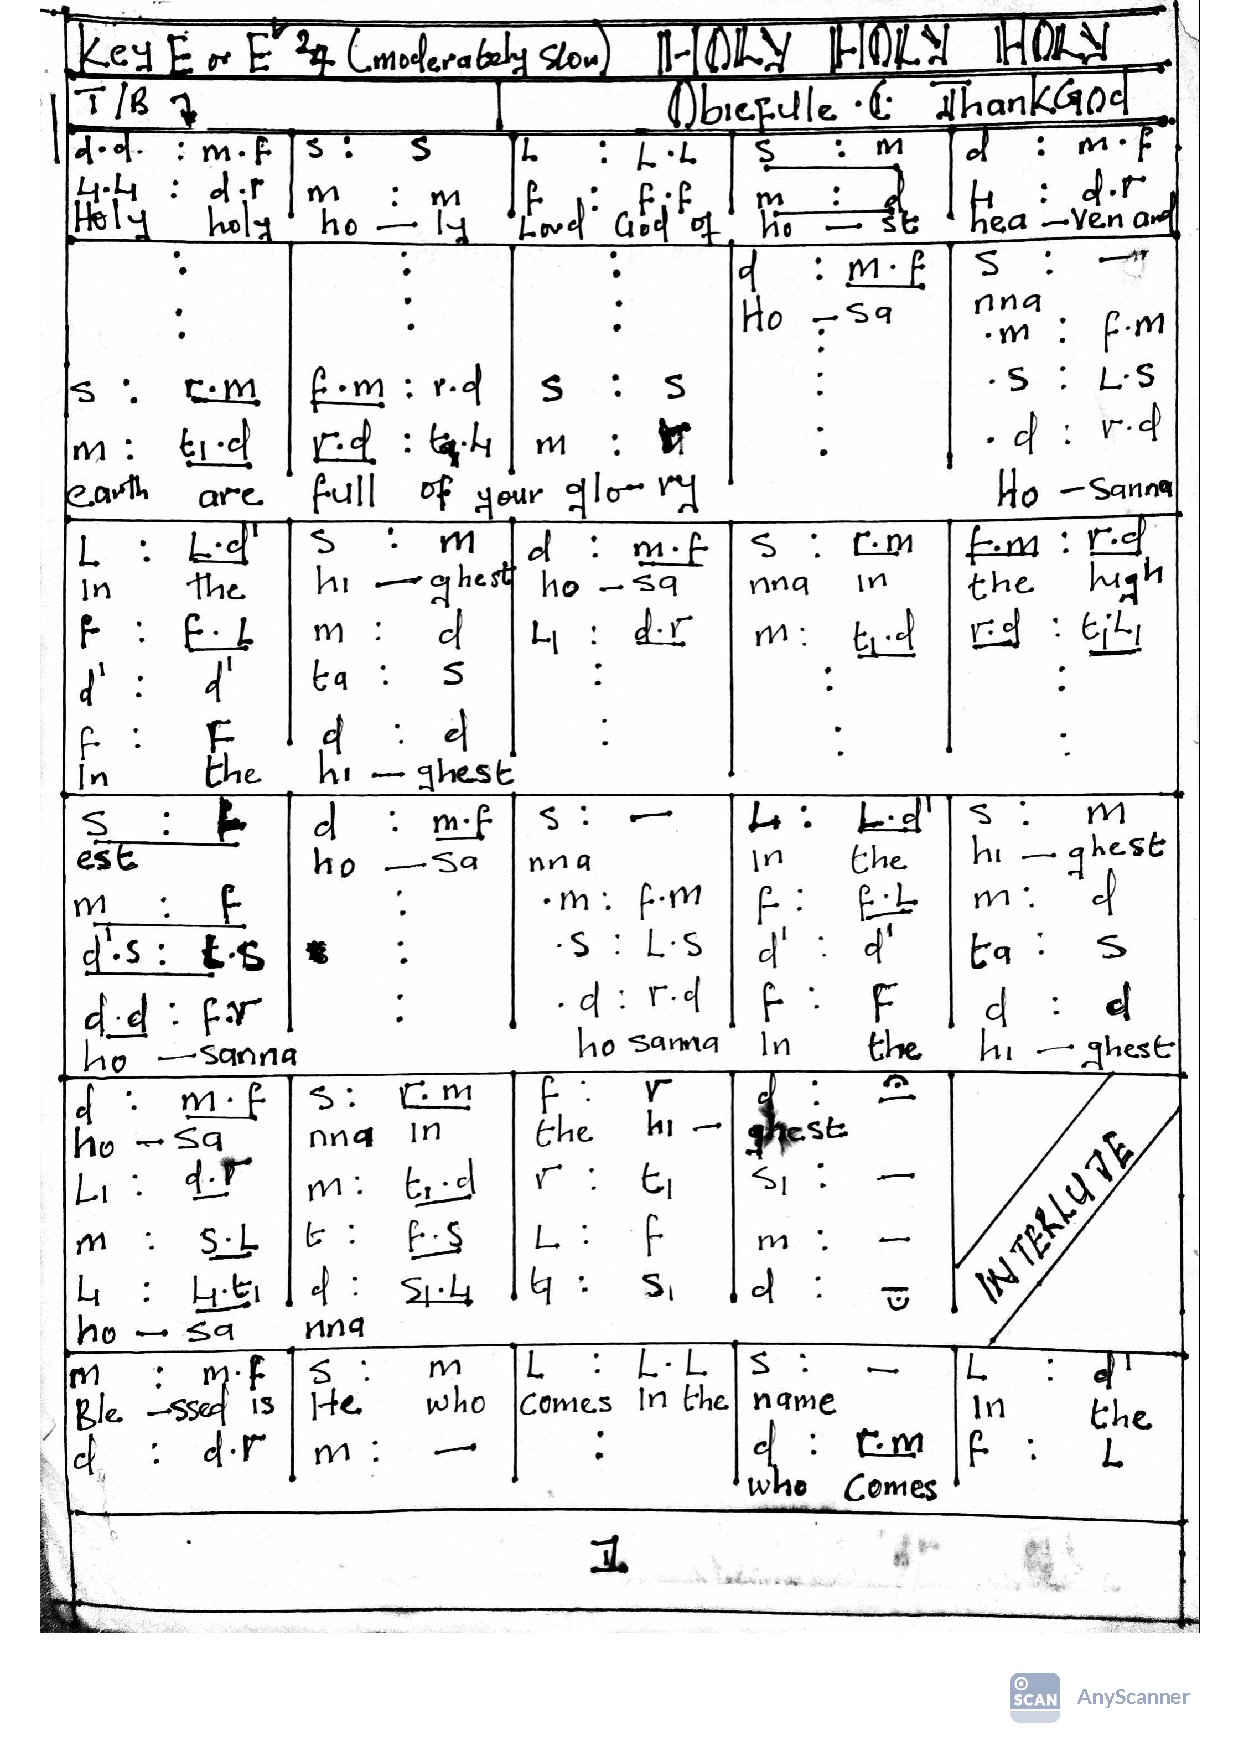 Key E or E♭ 2/4 (moderately slow) HOLY HOLY HOLY
T/B Obiefule . C ThankGod
d.d. : m.f | s : s | L : L.L | s : m | d : m.f
L₁.L₁ : d.r | m : m | f : f.f | m : d | L₁ : d.r
Holy holy | ho — ly | Lord God of | ho — st | hea — ven and
: | : | : | d : m.f | s : —
Ho — sa | nna
: | : | : | : | .m : f.m
s : r.m | f.m : r.d | s : s | : | .s : L.s
m : t₁.d | r.d : t₁.L₁ | m : | : | .d : r.d
earth are full of your glo — ry | Ho — sanna
L : L.d' | s : m | d : m.f | s : r.m | f.m : r.d
In the | hi — ghest | ho — sa | nna in | the high
f : f.L | m : d | L₁ : d.r | m : t₁.d | r.d : t₁.L₁
d' : d' | ta : s | : | : | :
f : F | d : d | : | : | :
In the | hi — ghest
s : | d : m.f | s : — | L : L.d' | s : m
est | ho — sa | nna | In the | hi — ghest
m : f | : | .m : f.m | f : f.L | m : d
d'.s : t.s | : | .s : L.s | d' : d' | ta : s
d.d : f.r | : | .d : r.d | f : F | d : d
ho — sanna | ho sanna | In the | hi — ghest
d : m.f | s : r.m | f : r | d : —
ho — sa | nna in | the hi — | ghest
L₁ : d.r | m : t₁.d | r : t₁ | s₁ : —
m : s.L | t : f.s | L : f | m : —
L₁ : L₁.t₁ | d : s₁.L₁ | t₁ : s₁ | d : —
ho — sa nna
INTERLUDE
m : m.f | s : m | L : L.L | s : — | L : d'
Ble — ssed is | He who | comes In the | name | In the
d : d.r | m : — | : | d : r.m | f : L
who comes
1
SCAN AnyScanner